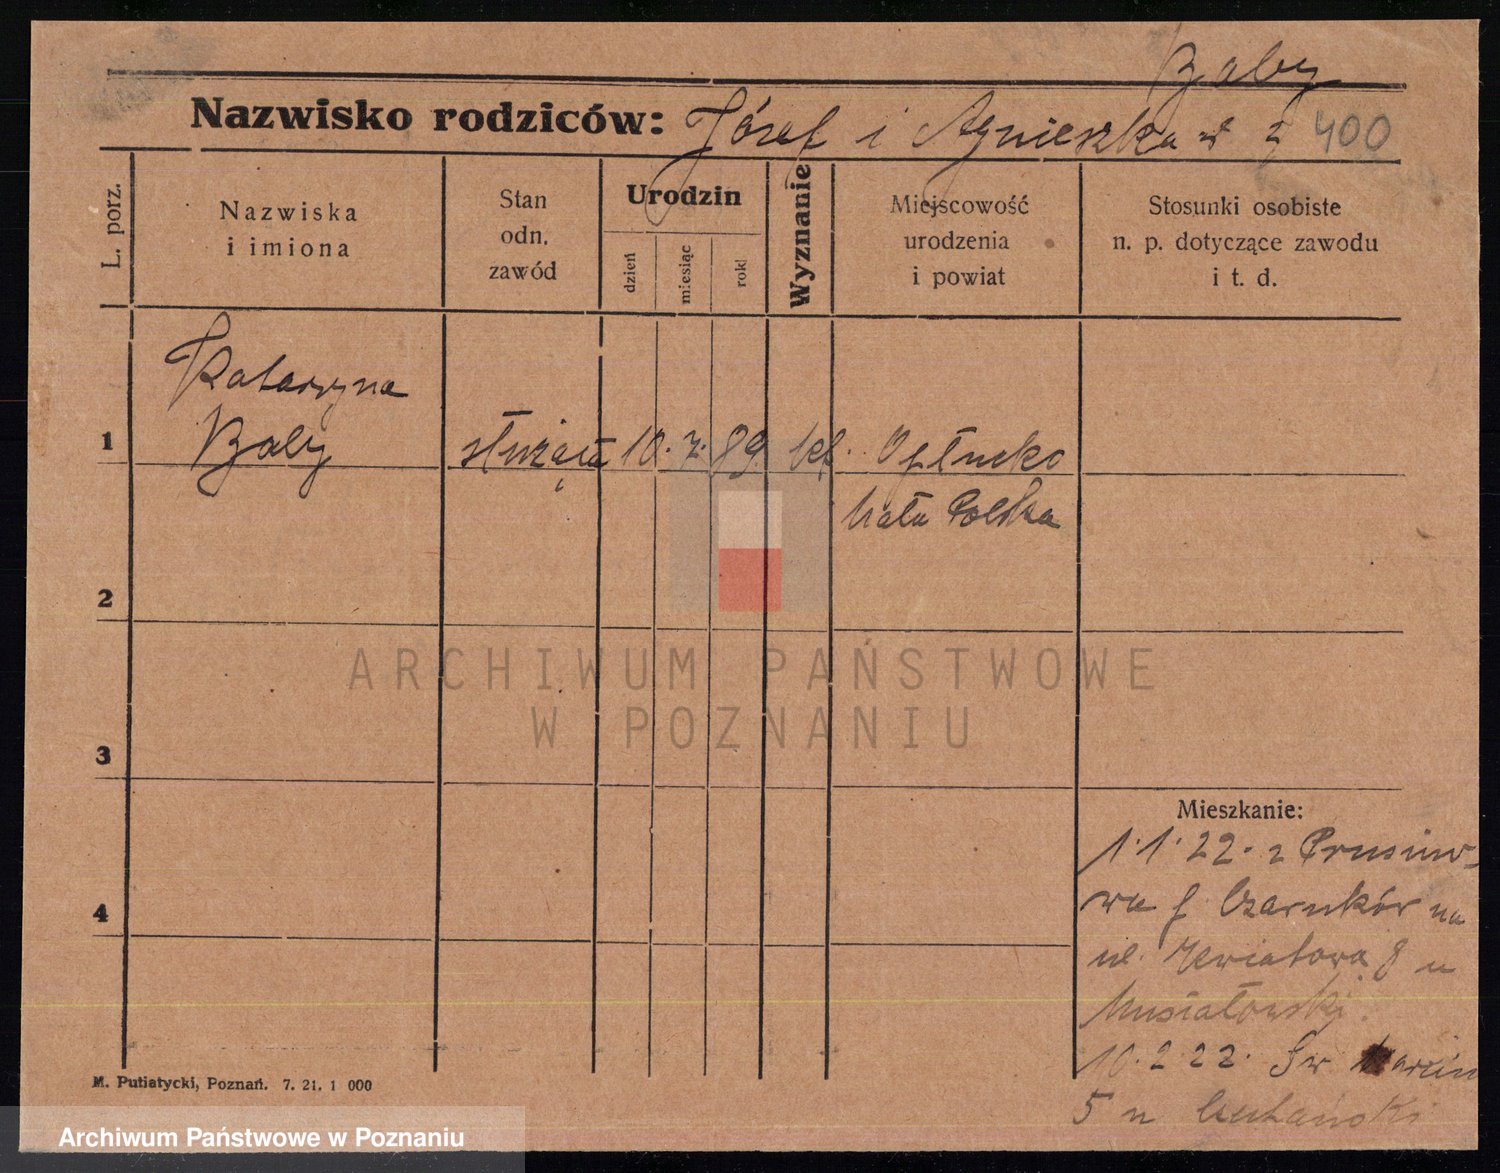 Baby
Nazwisko rodziców: Józef i Agnieszka 400
L. porz.
Nazwiska
i imiona
Stan
odn.
zawód
Urodzin
dzień
miesiąc
rok
Wyznanie
Miejscowość
urodzenia
i powiat
Stosunki osobiste
n. p. dotyczące zawodu
i t. d.
Katarzyna
1 Baby służąca 10. 7. 89 kf.
Mała Polska
2
ARCHIWUM PAŃSTWOWE
W POZNANIU
3
Mieszkanie:
1.1.22. z
4
wa Czarnków na
ul. Kwiatowa 8 u
Musiałowski.
10.2.22. Św Marcin
5 u
M. Putiatycki, Poznań. 7. 21. 1 000
Archiwum Państwowe w Poznaniu